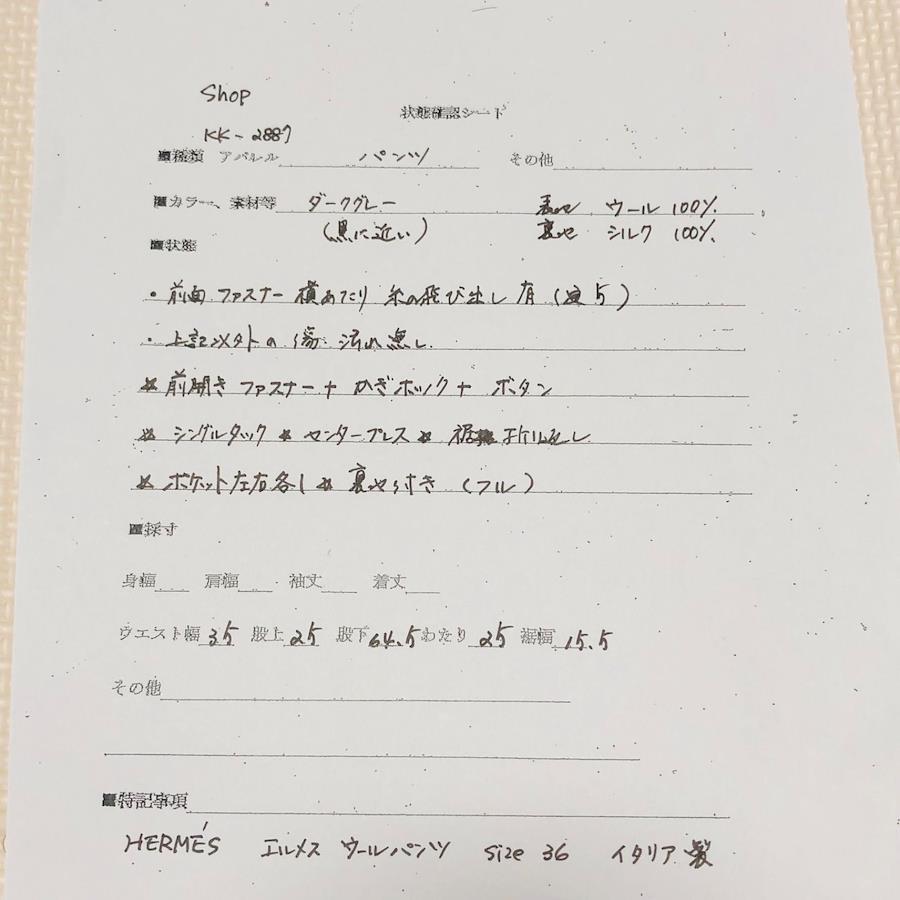 Shop
状態確認シート
KK-2887
■種類 アパレル パンツ その他
■カラー、素材等 ダークグレー 表地 ウール 100%
(黒に近い) 裏地 シルク 100%
■状態
・前面 ファスナー 横あたり 糸の飛び出し 有 (5)
・上記以外の 傷 汚れ 無し
* 前開き ファスナー + かぎホック + ボタン
* シングルタック * センタープレス * 裾 折り返し
* ポケット左右各1 * 裏地付き (フル)
■採寸
身幅 肩幅 袖丈 着丈
ウエスト幅 35 股上 25 股下 64.5 わたり 25 裾幅 15.5
その他
■特記事項
HERMÉS エルメス ウールパンツ size 36 イタリア 製